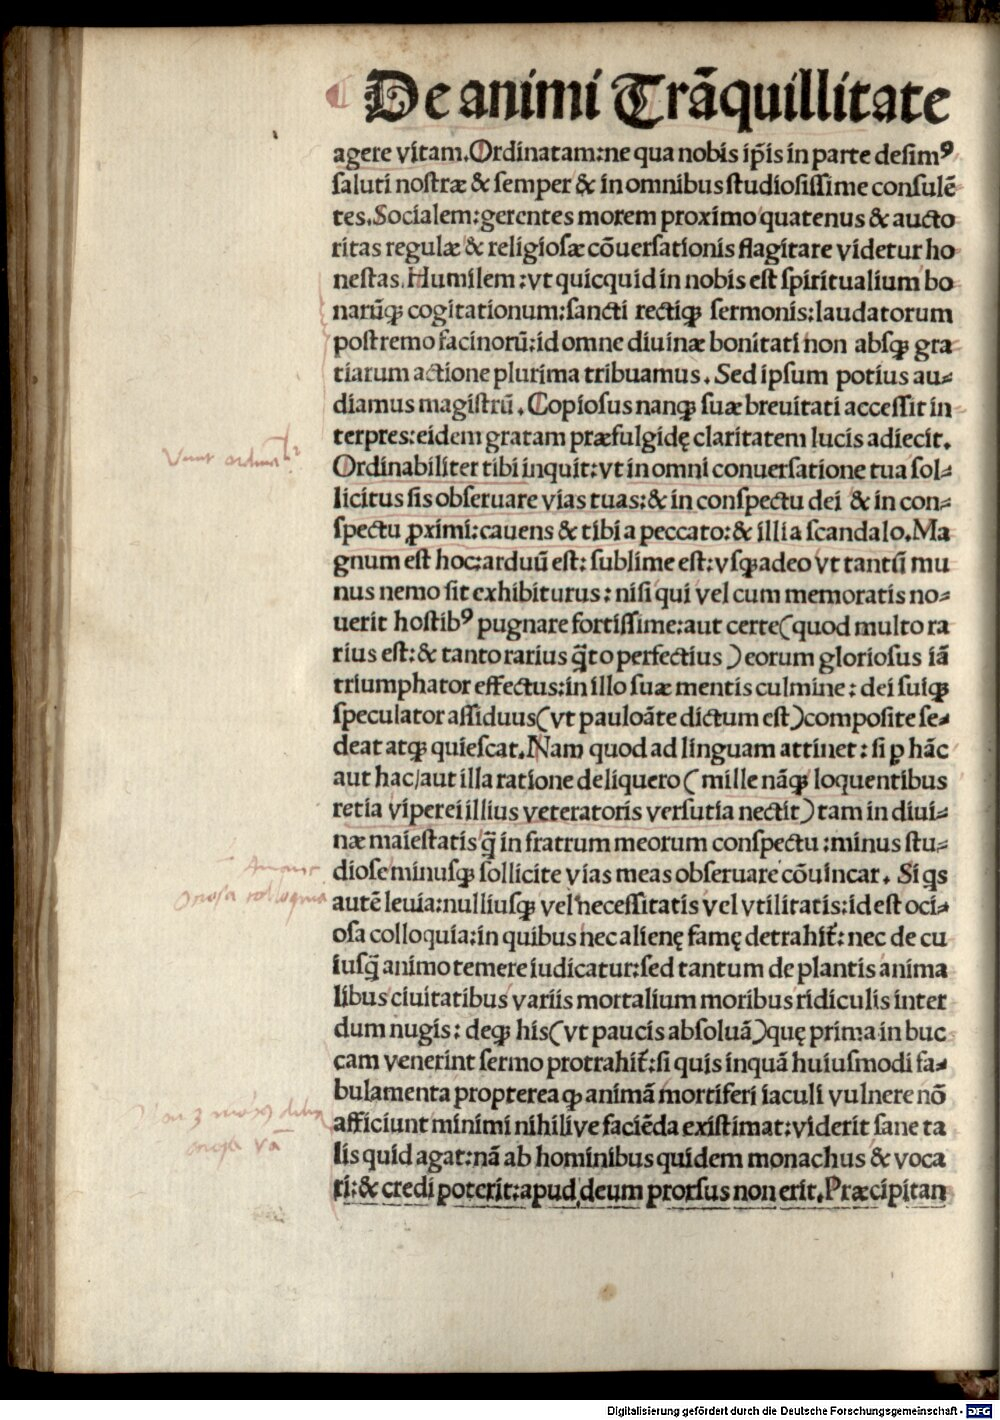 De animi Trāquillitate
agere vitam. Ordinatam: ne qua nobis ip̄is in parte desimꝰ
ſaluti noſtræ & ſemper & in omnibus ſtudioſiſſime conſulē
tes. Socialem: gerentes morem proximo quatenus & aucto
ritas regulæ & religioſæ cōuerſationis flagitare videtur ho
neſtas. Humilem: vt quicquid in nobis eſt ſpiritualium bo
narūq; cogitationum: ſancti rectiq; ſermonis: laudatorum
poſtremo facinorū: id omne diuinæ bonitati non abſq; gra
tiarum actione plurima tribuamus. Sed ipſum potius au⸗
diamus magiſtrū. Copioſus nanq; ſuæ breuitati acceſſit in
terpres: eidem gratam præfulgidę claritatem lucis adiecit.
Ordinabiliter tibi inquit: vt in omni conuerſatione tua ſol⸗
licitus ſis obſeruare vias tuas: & in conſpectu dei & in con⸗
ſpectu ꝓximi: cauens & tibi a peccato: & illi a ſcandalo. Ma
gnum eſt hoc: arduū eſt: ſublime eſt: vſq; adeo vt tantū mu
nus nemo ſit exhibiturus: niſi qui vel cum memoratis no⸗
uerit hoſtibꝰ pugnare fortiſſime: aut certe (quod multo ra
rius eſt: & tanto rarius q̄to perfectius) eorum glorioſus iā
triumphator effectus: in illo ſuæ mentis culmine: dei ſuiq;
ſpeculator aſſiduus (vt pauloāte dictum eſt) compoſite ſe⸗
deat atq; quieſcat. Nam quod ad linguam attinet: ſi ꝑ hāc
aut hac/aut illa ratione deliquero (mille nāq; loquentibus
retia viperei illius veteratoris verſutia nectit) tam in diui⸗
næ maieſtatis q̄ in fratrum meorum conſpectu: minus ſtu⸗
dioſe minuſq; ſollicite vias meas obſeruare cōuincar. Si qs
autē leuia: nulliuſq; vel neceſſitatis vel vtilitatis: id eſt oci⸗
oſa colloquia: in quibus nec alienę famę detrahit᷑: nec de cu
iuſq̄ animo temere iudicatur: ſed tantum de plantis anima
libus ciuitatibus variis mortalium moribus ridiculis inter
dum nugis: deq; his (vt paucis abſoluā) quę prima in buc
cam venerint ſermo protrahit᷑: ſi quis inquā huiuſmodi fa⸗
bulamenta propterea q; animā mortiferi iaculi vulnere nō
afficiunt minimi nihilive faciēda exiſtimat: viderit ſane ta
lis quid agat: nā ab hominibus quidem monachus & voca
ri: & credi poterit: apud deum prorſus non erit. Præcipitan
Ociosa colloquia
Digitalisierung gefördert durch die Deutsche Forschungsgemeinschaft - DFG